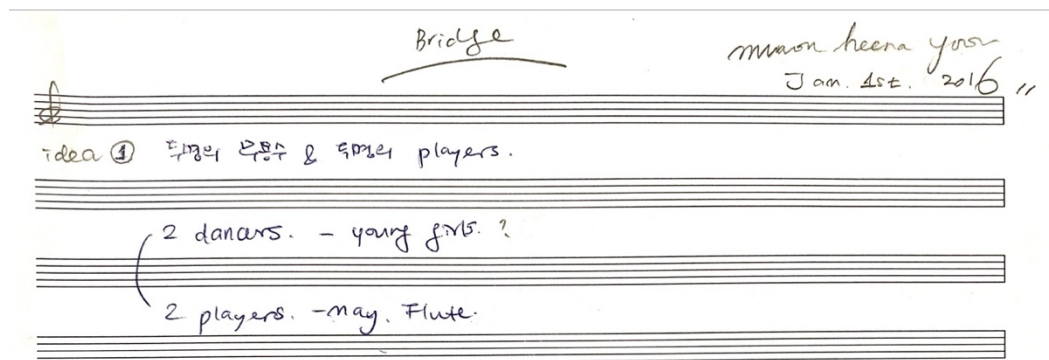 Bridge
heena yoon
Jan. 1st. 2016 "
idea ① 두명의 무용수 & 두명의 players.
2 dancers. - young girls. ?
2 players. - nay. Flute.